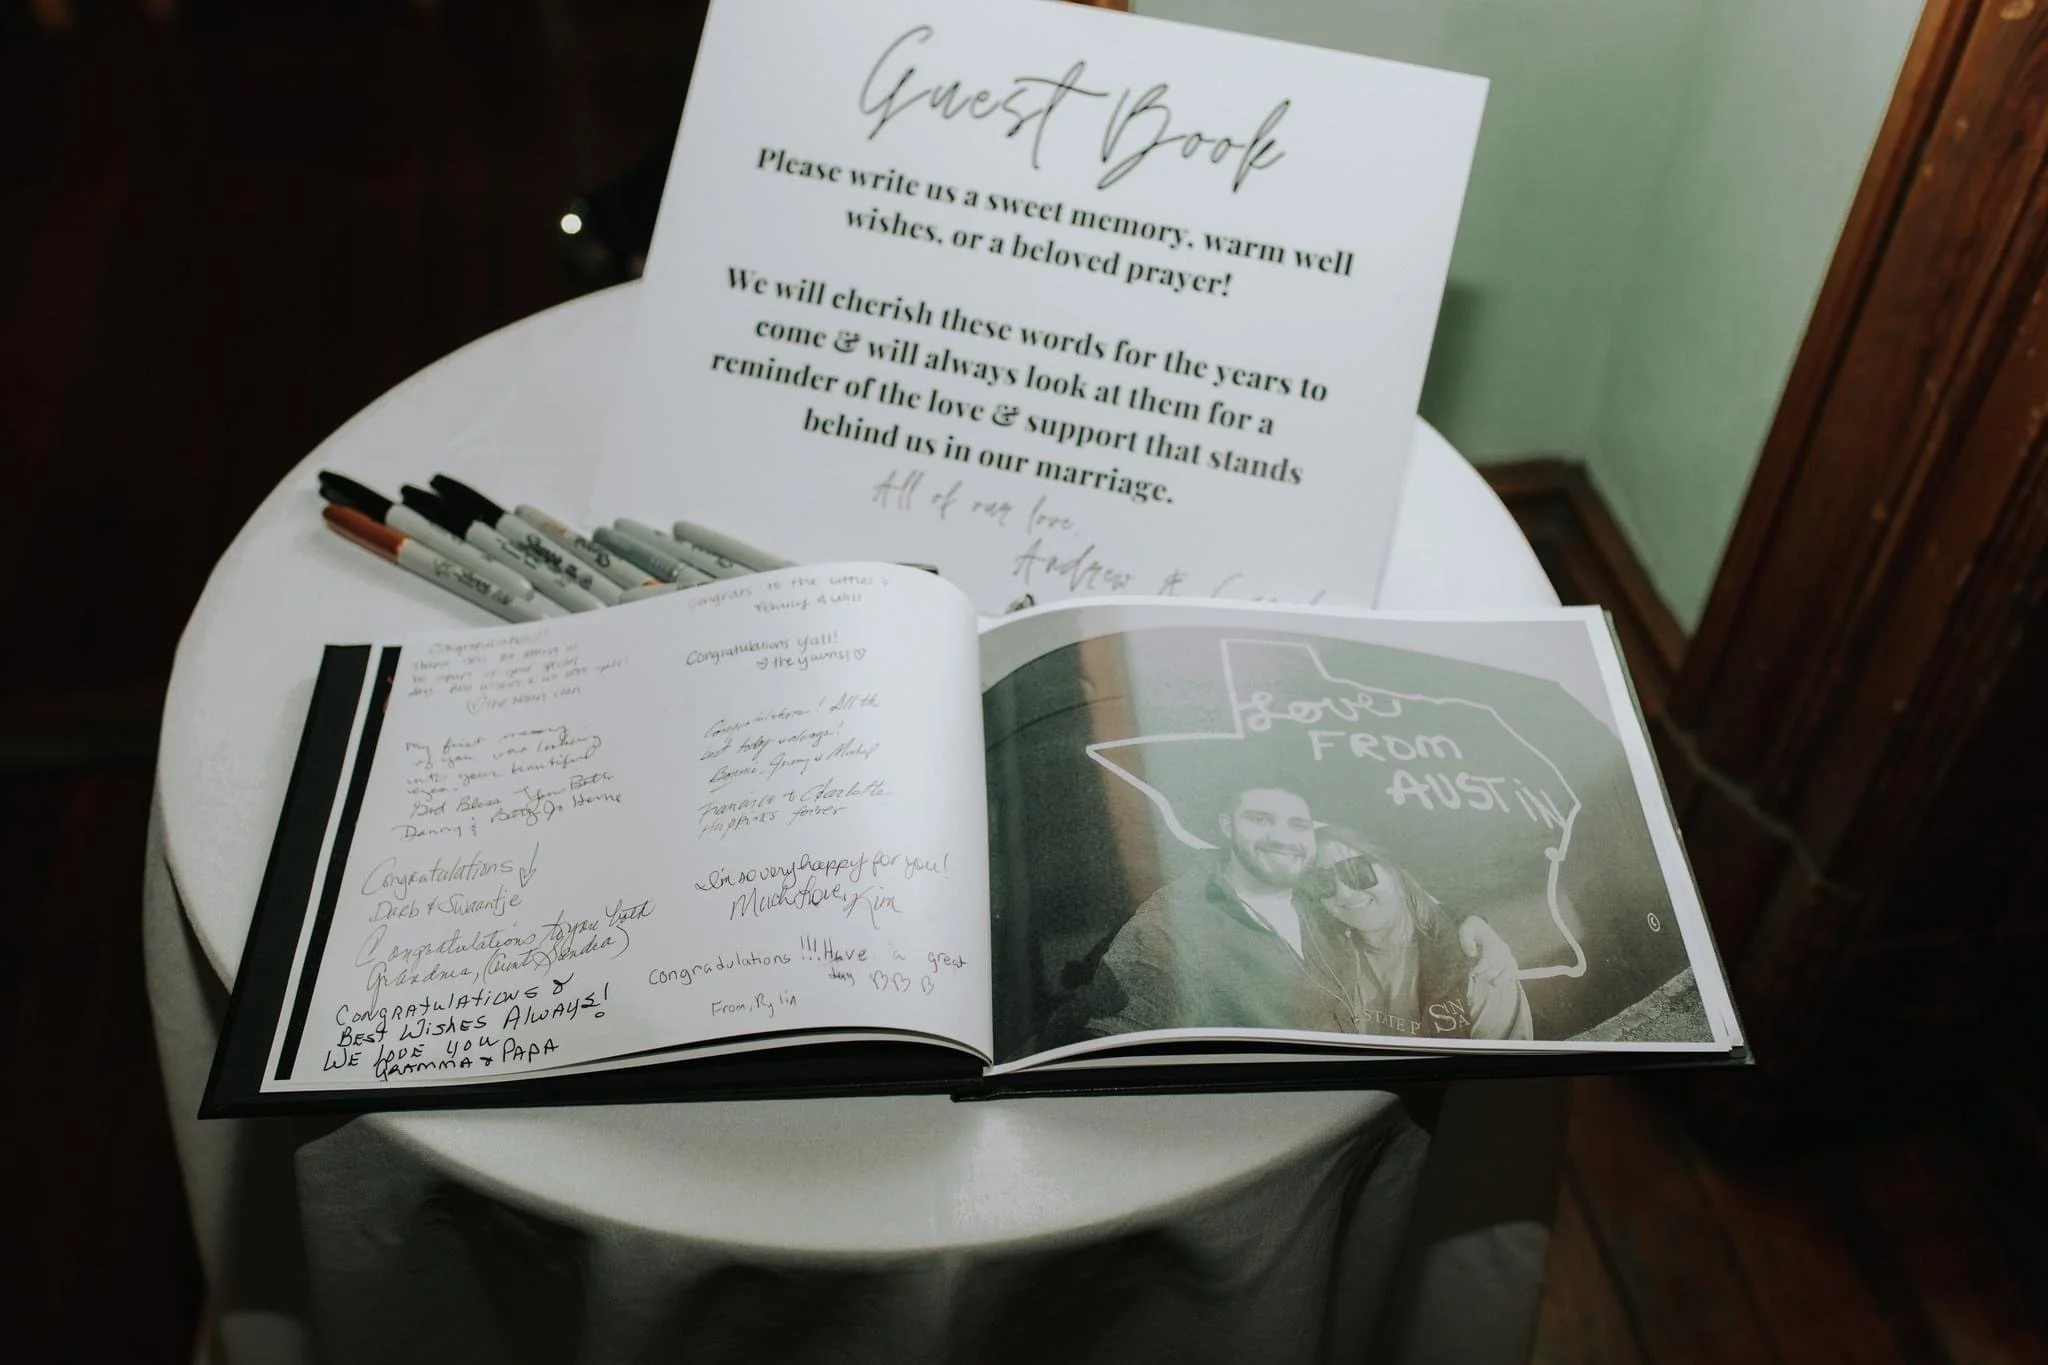 Guest Book
Please write us a sweet memory, warm well
wishes, or a beloved prayer!
We will cherish these words for the years to
come & will always look at them for a
reminder of the love & support that stands
behind us in our marriage.
All of our love,
Andrew &
Congratulations!
Thank you for letting us
be apart of your special
day.
My first memory
of you was looking
into your beautiful
God Bless You Both
Danny & Betty Jo Horne
Congratulations
Darb & Swaantje
Congratulations to you both
Grandma, (Aunt Sandra)
CONGRATULATIONS &
BEST WISHES ALWAYS!
WE LOVE YOU
GRAMMA & PAPA
Congrats to the
& Will
Congratulations y'all!
♡ the
Congratulations! All the
best today & always!
Bonnie, Jeremy & Michael
Francisco & Charlotte
Happiness forever
I'm so very happy for you!
Much Love, Kim
Congradulations !!! Have a great
day
From, Rylin
Love
FROM
AUSTIN
©
STATE P